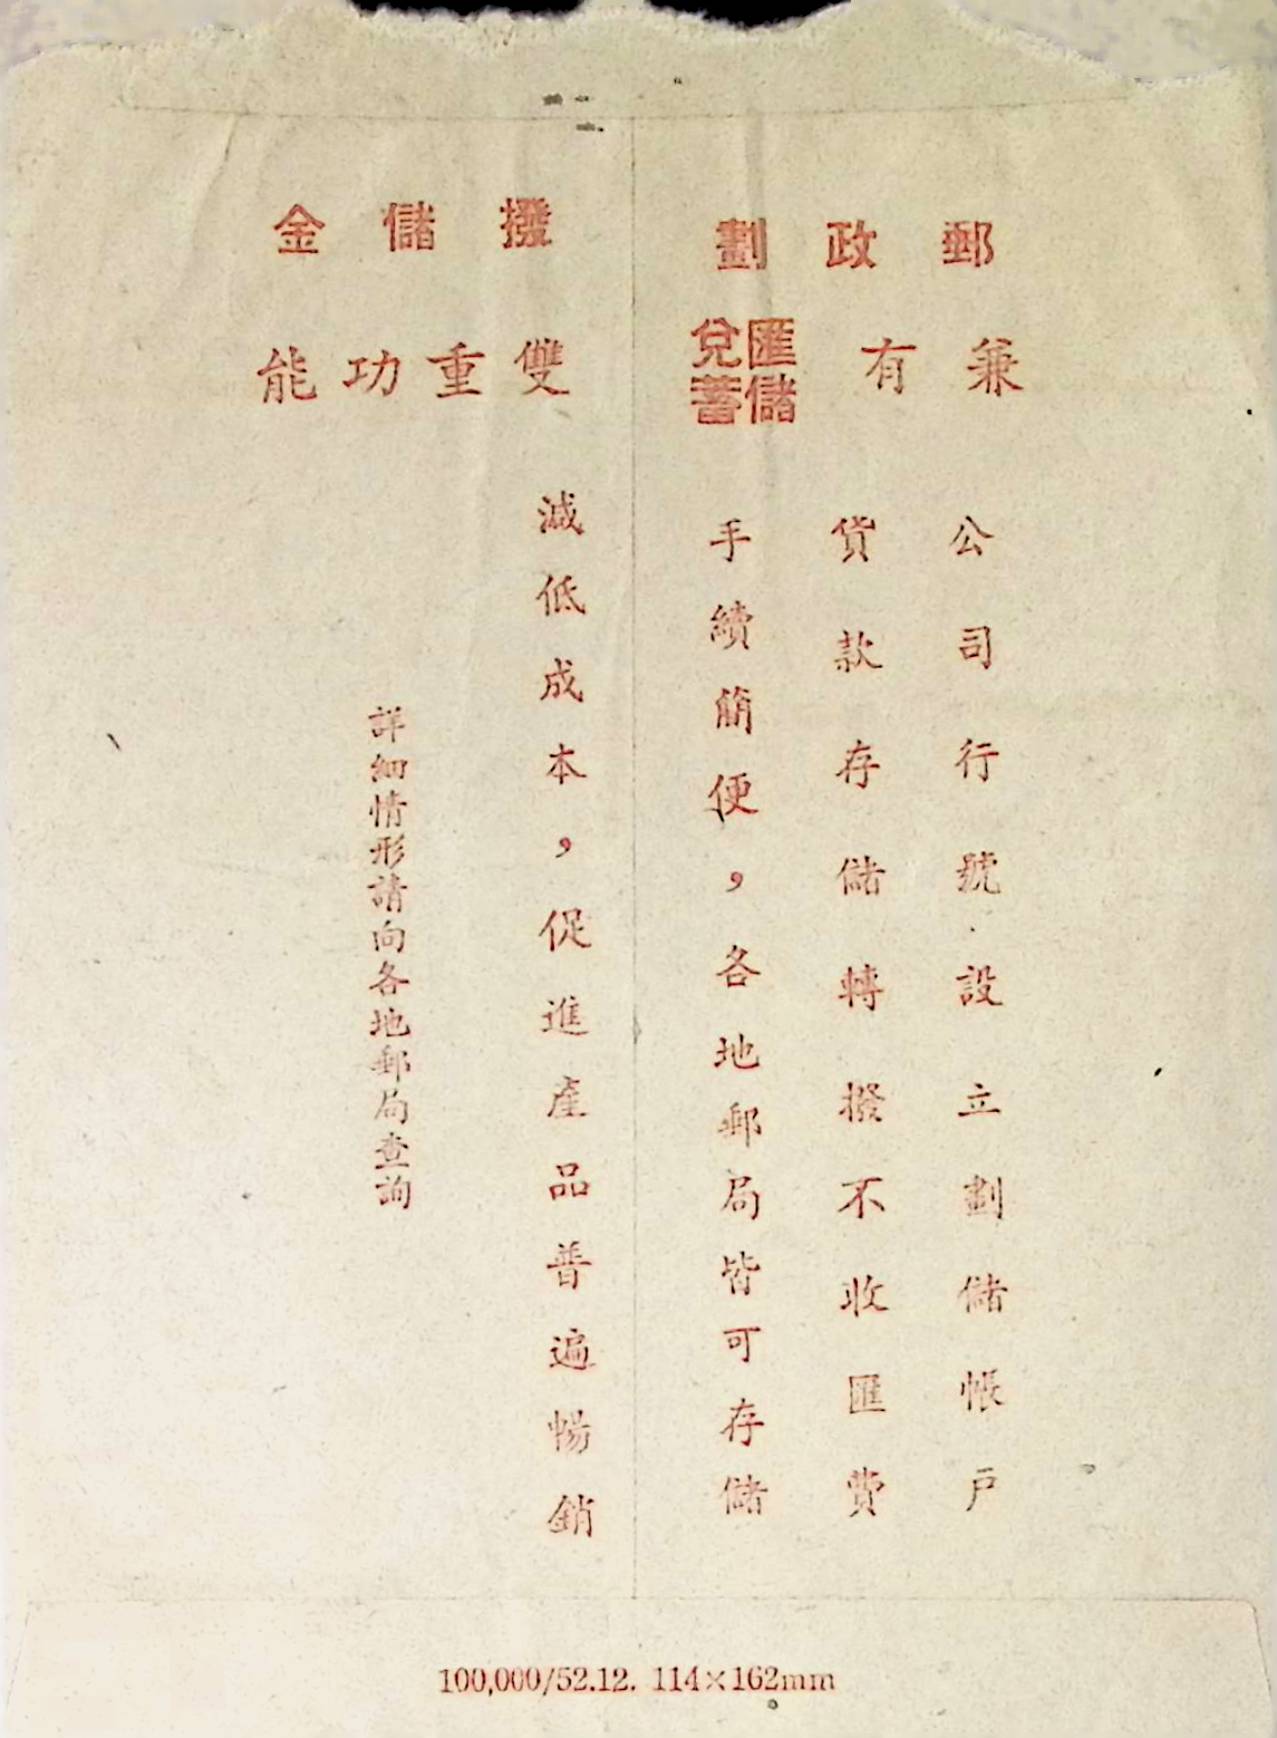 郵政劃撥儲金
兼有匯兌儲蓄雙重功能
公司行號設立劃儲帳戶
貨款存儲轉撥不收匯費
手續簡便，各地郵局皆可存儲
減低成本，促進產品普遍暢銷
詳細情形請向各地郵局查詢
100,000/52.12. 114×162mm